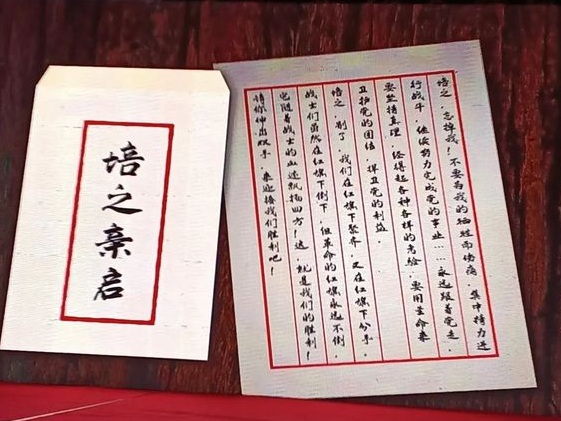 培之亲启
培之，忘掉我！不要为我的牺牲而伤痛，集中精力进
行战斗，继续努力完成党的事业……永远跟着党走，
要坚持真理，经得起各种各样的考验，要用生命来
卫护党的团结，捍卫党的利益。
培之，别了，我们在红旗下聚齐，又在红旗下分手。
战士们虽然在红旗下倒下，但革命的红旗永远不倒，
它随着战士的血迹飘扬四方！这，就是我们的胜利！
请你伸出双手，来迎接我们胜利吧！